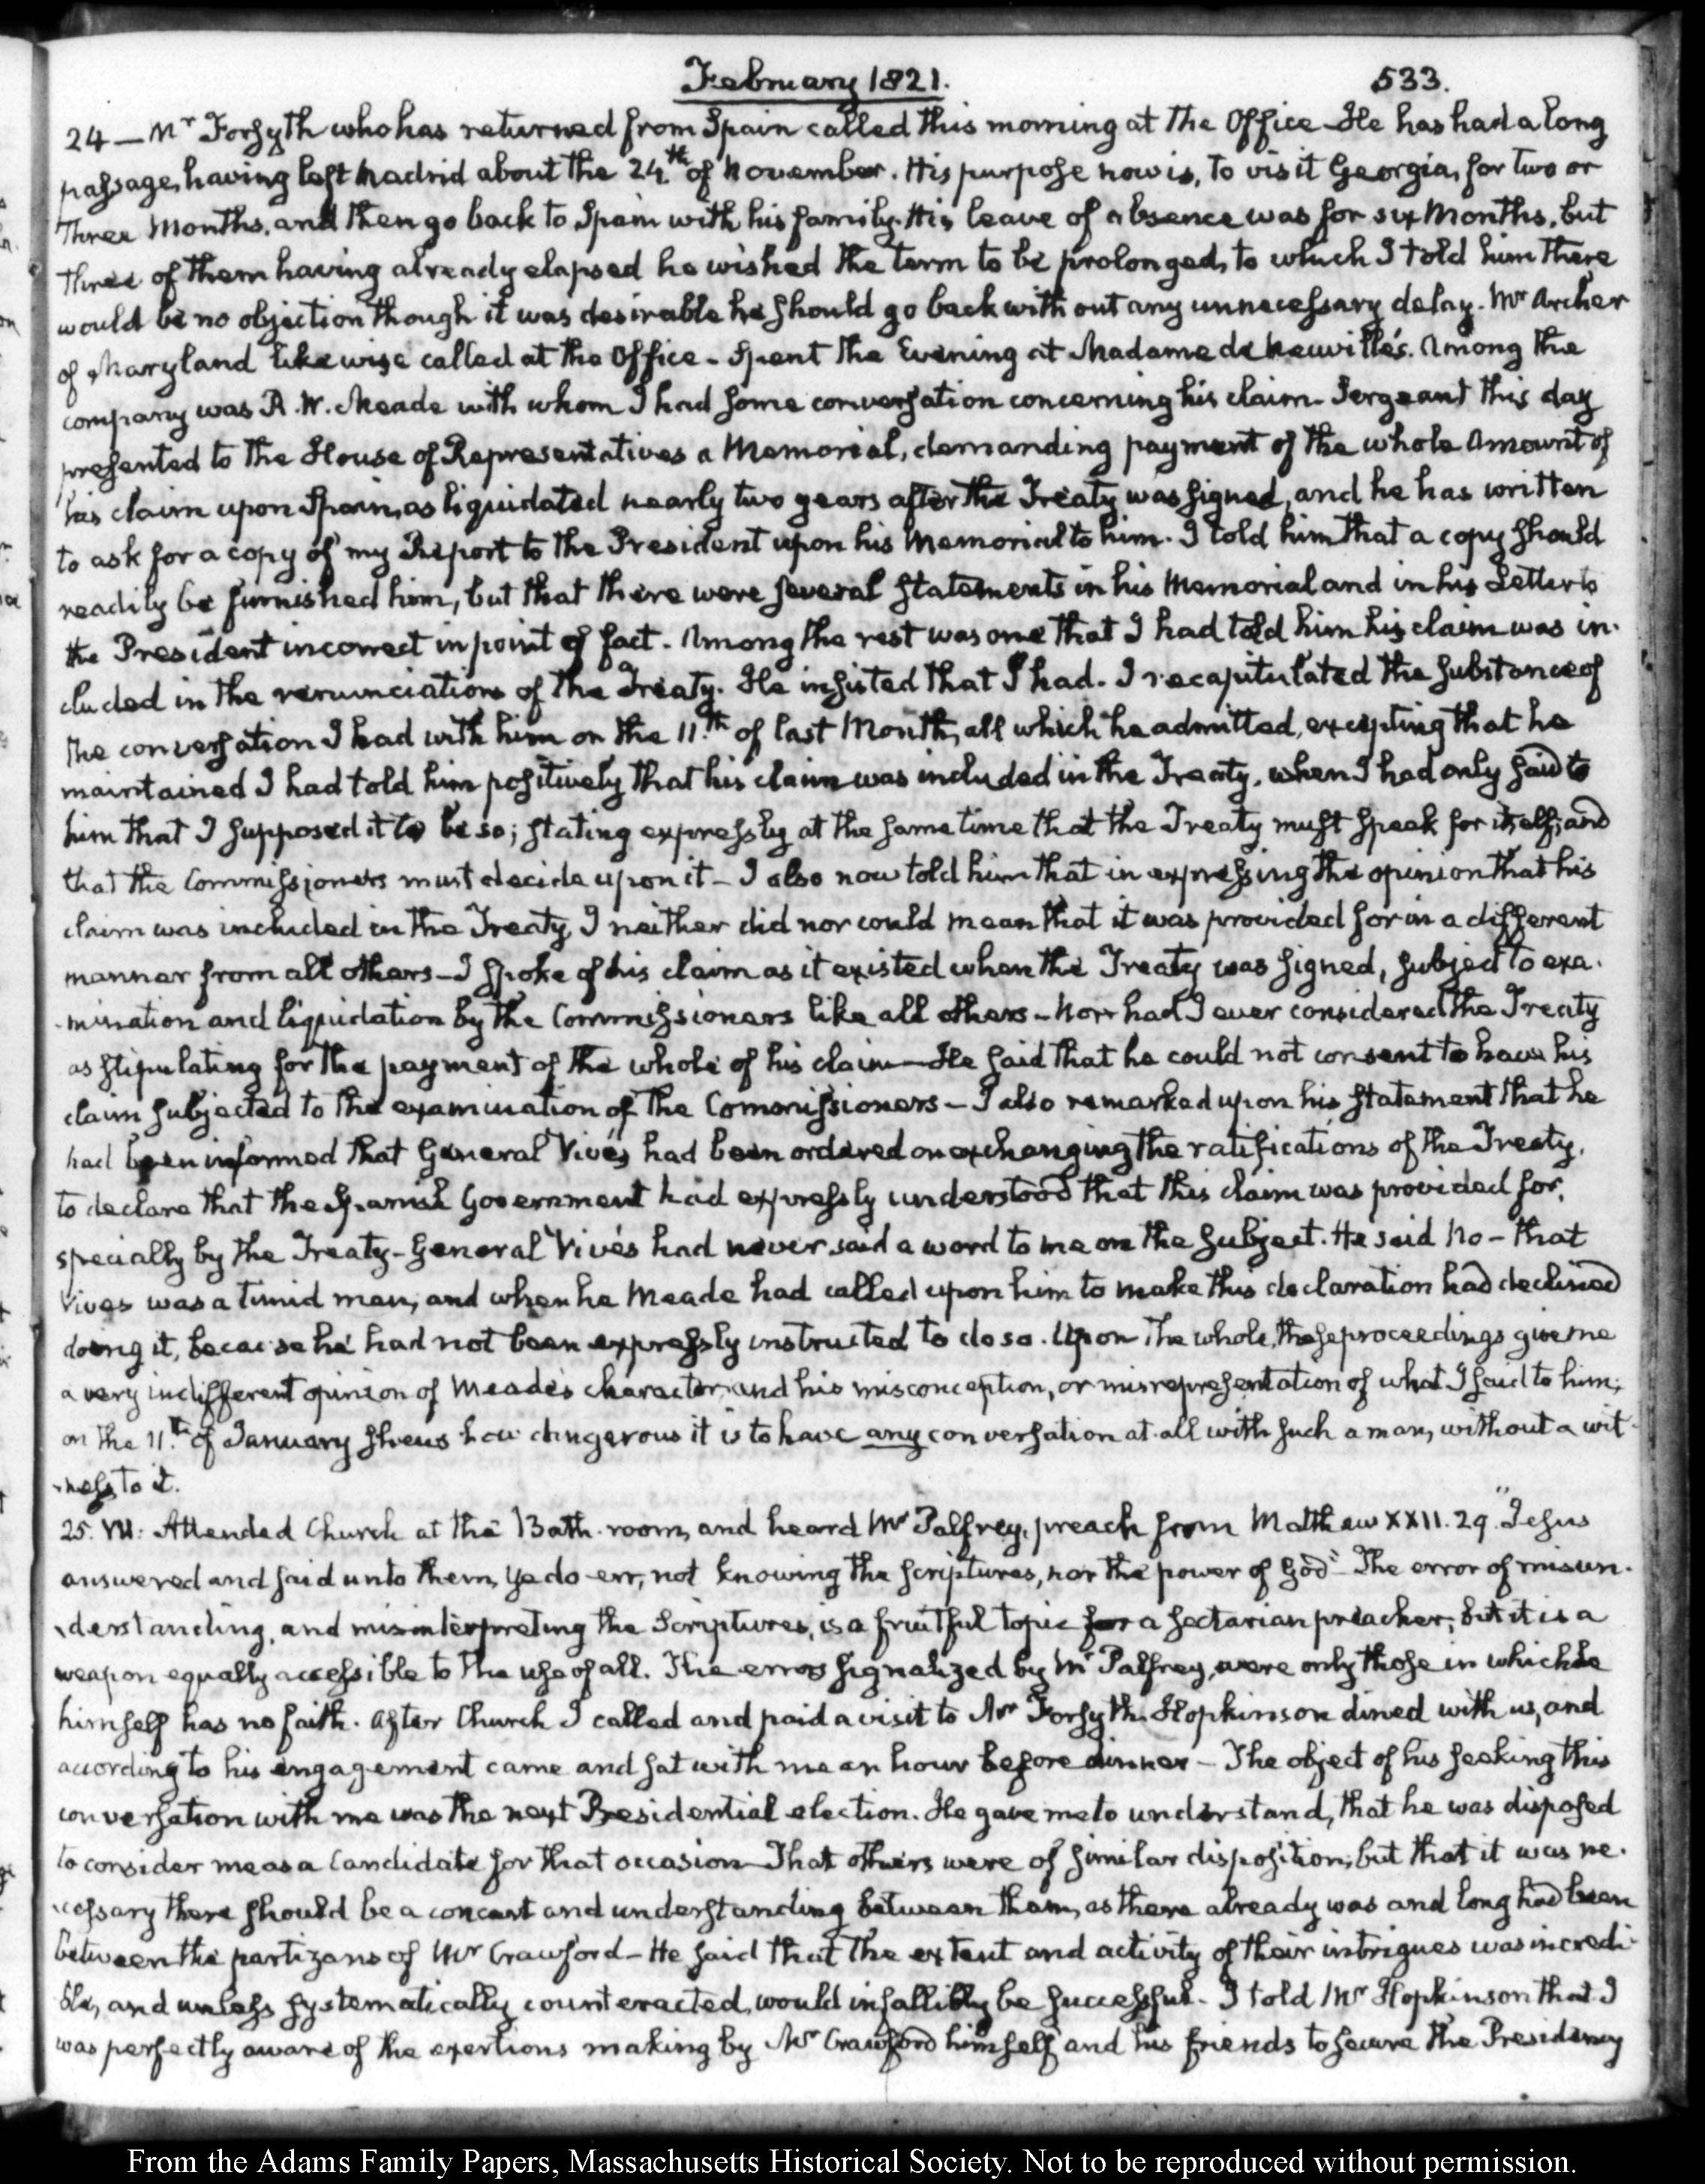 February 1821.
533.
24 — Mr Forsyth who has returned from Spain called this morning at the Office — He has had a long
passage, having left Madrid about the 24.th of November. His purpose now is, to visit Georgia, for two or
three Months, and then go back to Spain with his family. His leave of absence was for six Months, but
three of them having already elapsed he wished the term to be prolonged, to which I told him there
would be no objection though it was desirable he should go back without any unnecessary delay. Mr Archer
of Maryland likewise called at the Office — Spent the Evening at Madame de Neuville's. Among the
company was R. W. Meade with whom I had some conversation concerning his claim — Sergeant this day
presented to the House of Representatives a Memorial, demanding payment of the whole Amount of
his claim upon Spain, as liquidated nearly two years after the Treaty was signed, and he has written
to ask for a copy of my Report to the President upon his Memorial to him. I told him that a copy should
readily be furnished him, but that there were several statements in his Memorial and in his Letter to
the President incorrect in point of fact. Among the rest was one that I had told him his claim was in-
cluded in the renunciations of the Treaty. He insisted that I had. I recapitulated the substance of
the conversation I had with him on the 11.th of last Month, all which he admitted, excepting that he
maintained I had told him positively that his claim was included in the Treaty, when I had only said to
him that I supposed it to be so; stating expressly at the same time that the Treaty must speak for itself; and
that the Commissioners must decide upon it — I also now told him that in expressing the opinion that his
claim was included in the Treaty, I neither did nor could mean that it was provided for in a different
manner from all others — I spoke of his claim as it existed when the Treaty was signed, subject to exa-
-mination and liquidation by the Commissioners like all others — Nor had I ever considered the Treaty
as stipulating for the payment of the whole of his claim — He said that he could not consent to have his
claim subjected to the examination of the Commissioners — I also remarked upon his statement that he
had been informed that General Vivés had been ordered on exchanging the ratifications of the Treaty,
to declare that the Spanish Government had expressly understood that this claim was provided for,
specially by the Treaty — General Vivés had never said a word to me on the subject. He said No — that
Vives was a timid man, and when he Meade had called upon him to make this declaration had declined
doing it, because he had not been expressly instructed to do so. Upon the whole, these proceedings give me
a very indifferent opinion of Meade's character, and his misconception, or misrepresentation of what I said to him,
on the 11.th of January shews how dangerous it is to have any conversation at all with such a man, without a wit-
-ness to it.
25. VII: Attended Church at the Bath-room, and heard Mr Palfrey, preach from Matthew XXII. 29. "Jesus
answered and said unto them, ye do err, not knowing the scriptures, nor the power of God" — The error of misun-
-derstanding, and misinterpreting the Scriptures, is a fruitful topic for a sectarian preacher; but it is a
weapon equally accessible to the use of all. The errors signalized by Mr Palfrey, were only those in which he
himself has no faith. After Church I called and paid a visit to Mr Forsyth. Hopkinson dined with us, and
according to his engagement came and sat with me an hour before dinner — The object of his seeking this
conversation with me was the next Presidential election. He gave me to understand, that he was disposed
to consider me as a Candidate for that occasion — That others were of similar disposition; but that it was ne-
-cessary there should be a concert and understanding between them, as there already was and long had been
between the partizans of Mr Crawford — He said that the extent and activity of their intrigues was incredi-
ble, and unless systematically counteracted, would infallibly be successful. I told Mr Hopkinson that I
was perfectly aware of the exertions making by Mr Crawford himself and his friends to secure the Presidency
From the Adams Family Papers, Massachusetts Historical Society. Not to be reproduced without permission.